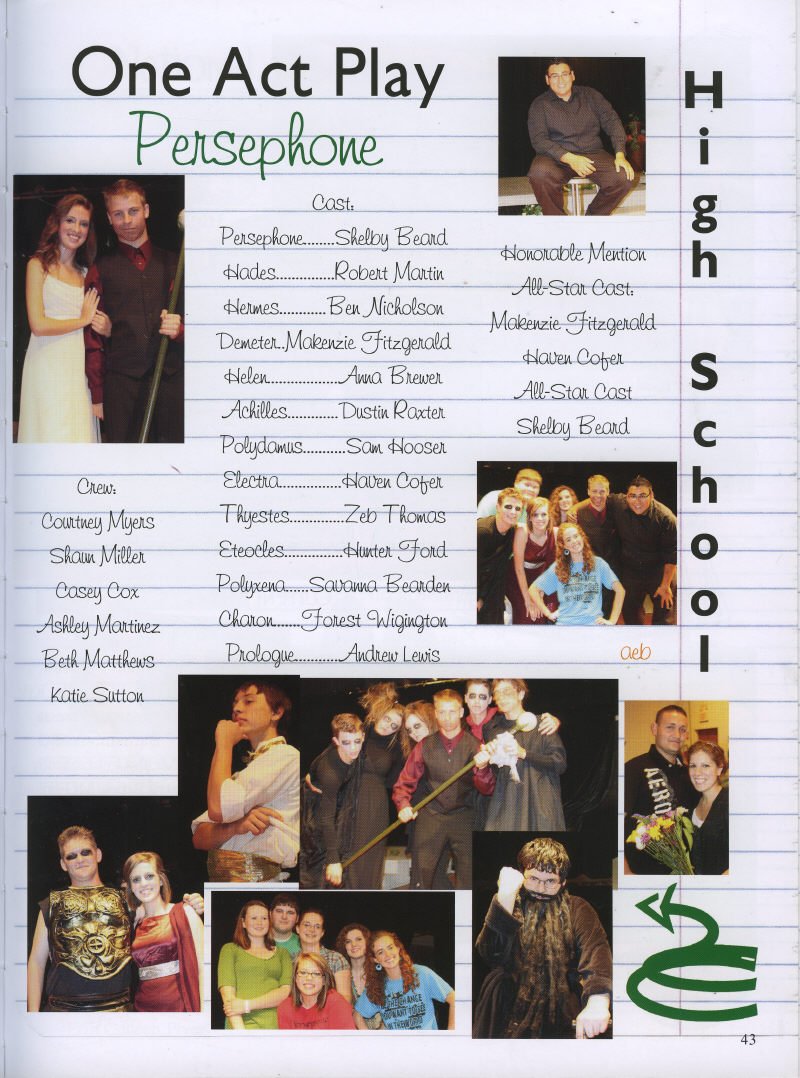 One Act Play
Persephone
Cast:
Persephone........Shelby Beard
Hades..............Robert Martin
Hermes............Ben Nicholson
Demeter..Makenzie Fitzgerald
Helen..................Anna Brewer
Achilles............Dustin Raxter
Polydamus...........Sam Hooser
Electra...............Haven Cofer
Thyestes..............Zeb Thomas
Eteocles..............Hunter Ford
Polyxena......Savanna Bearden
Charon.......Forest Wigington
Prologue............Andrew Lewis
Honorable Mention
All-Star Cast:
Makenzie Fitzgerald
Haven Cofer
All-Star Cast
Shelby Beard
Crew:
Courtney Myers
Shaun Miller
Casey Cox
Ashley Martinez
Beth Matthews
Katie Sutton
aeb
High School
AERO
THE CHANGE
IN THE WORLD
43